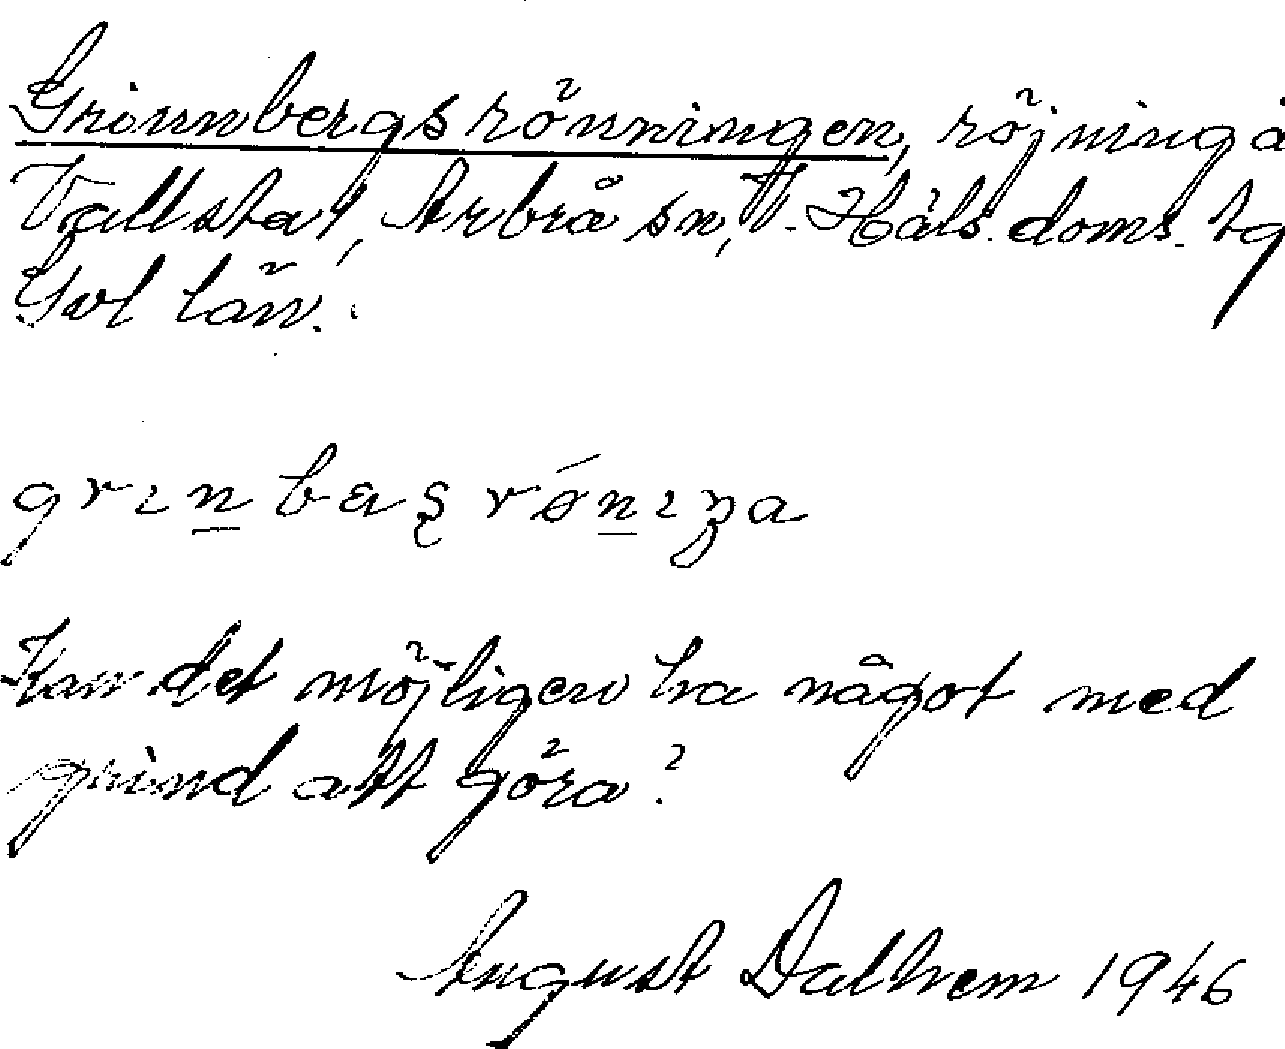 Grinnbergsrönningen, röjning å
Vallsta 1, Arbrå sn, V. Häls. doms. tg
Gvl län.
Kan det möjligen ha något med
grind att göra?
August Dalhem 1946